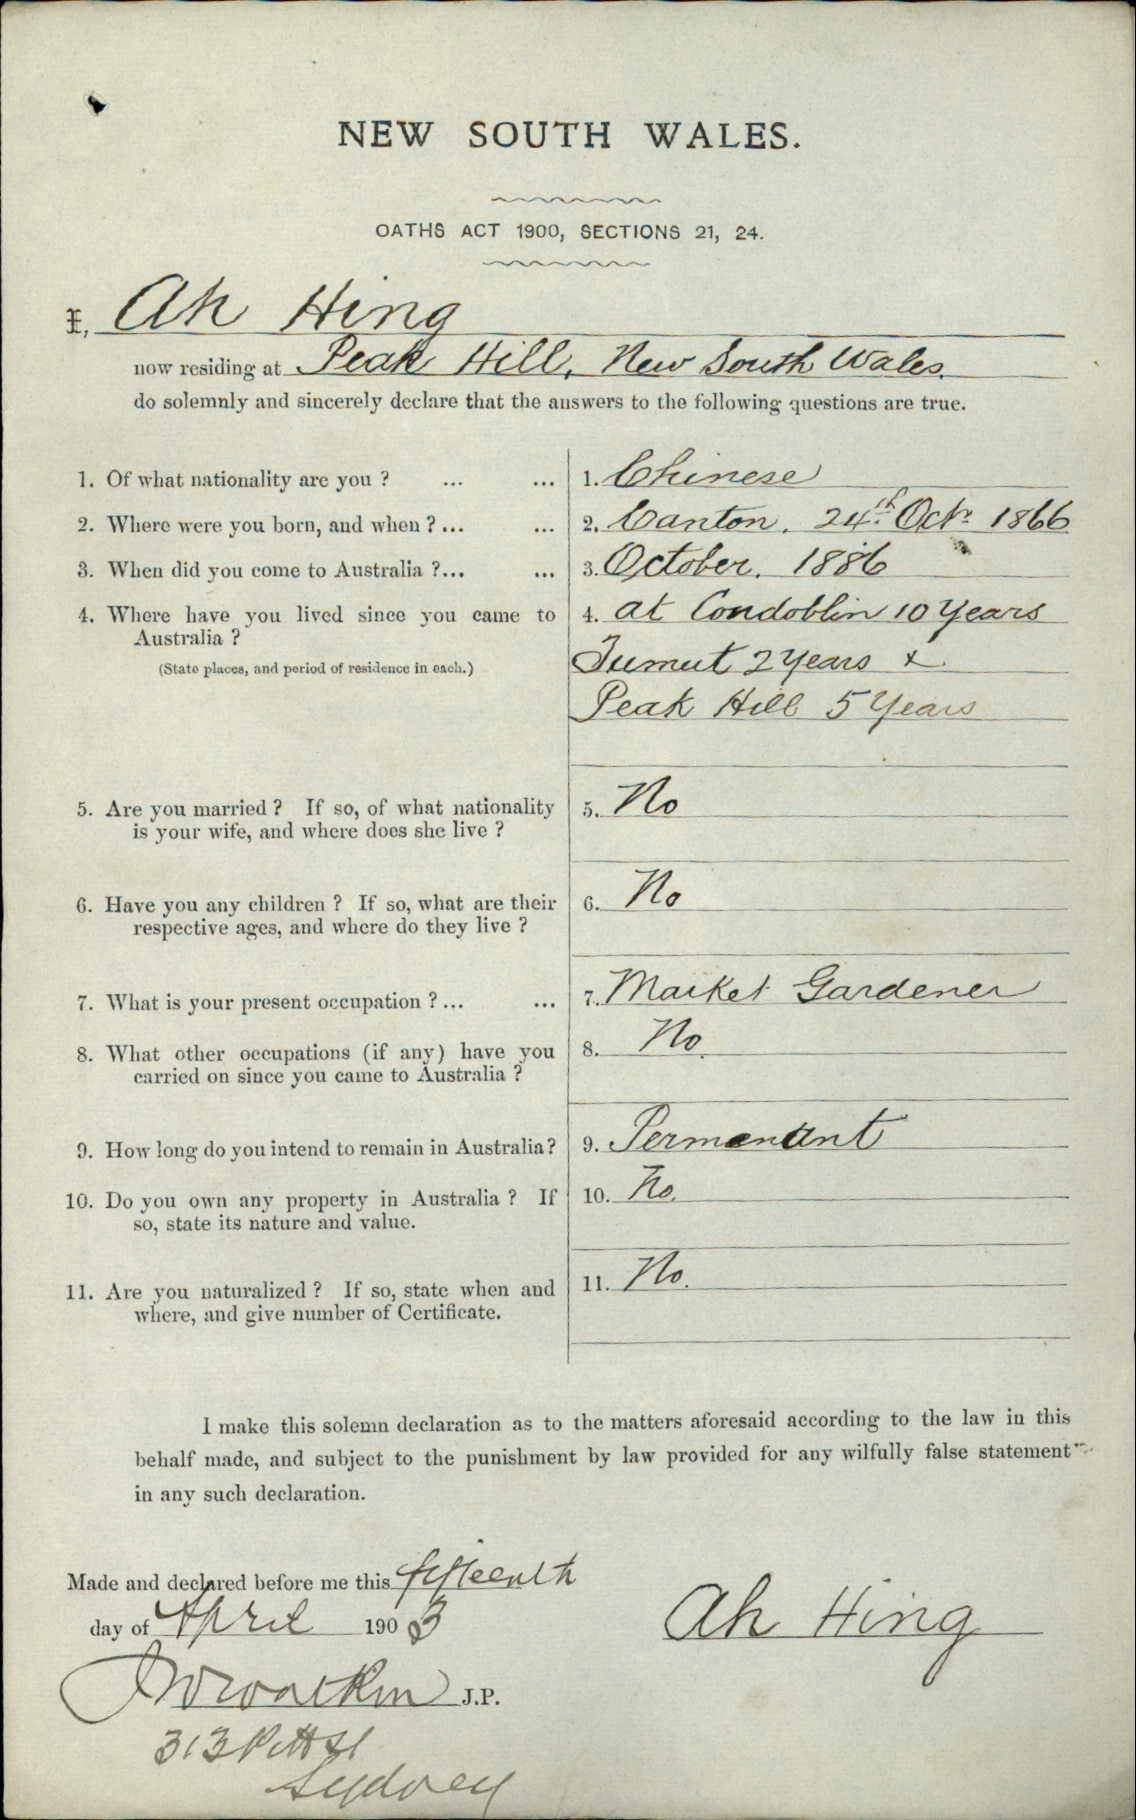 NEW SOUTH WALES.
OATHS ACT 1900, SECTIONS 21, 24.
I, Ah Hing
now residing at Peak Hill, New South Wales.
do solemnly and sincerely declare that the answers to the following questions are true.
1. Of what nationality are you ? ... ... 1. Chinese
2. Where were you born, and when ?... ... 2. Canton. 24th Octr 1866
3. When did you come to Australia ?... ... 3. October. 1886
4. Where have you lived since you came to 4. at Condoblin 10 Years
Australia ?
(State places, and period of residence in each.) Tumut 2 Years &
Peak Hill 5 Years
5. Are you married ? If so, of what nationality 5. No
is your wife, and where does she live ?
6. Have you any children ? If so, what are their 6. No
respective ages, and where do they live ?
7. What is your present occupation ?... ... 7. Market Gardener
8. What other occupations (if any) have you 8. No.
carried on since you came to Australia ?
9. How long do you intend to remain in Australia? 9. Permanant
10. Do you own any property in Australia ? If 10. No.
so, state its nature and value.
11. Are you naturalized ? If so, state when and 11. No.
where, and give number of Certificate.
I make this solemn declaration as to the matters aforesaid according to the law in this
behalf made, and subject to the punishment by law provided for any wilfully false statement
in any such declaration.
Made and declared before me this fifteenth
day of April 1903
Ah Hing
J.P.
313 Pitt St
Sydney